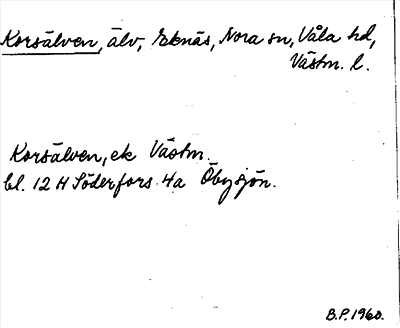 Korsälven, älv, Eknäs, Nora sn, Våla hd,
Västm. l.
Korsälven, ek Västm.
bl. 12 H Söderfors 4a Öbysjön.
B.P. 1960.